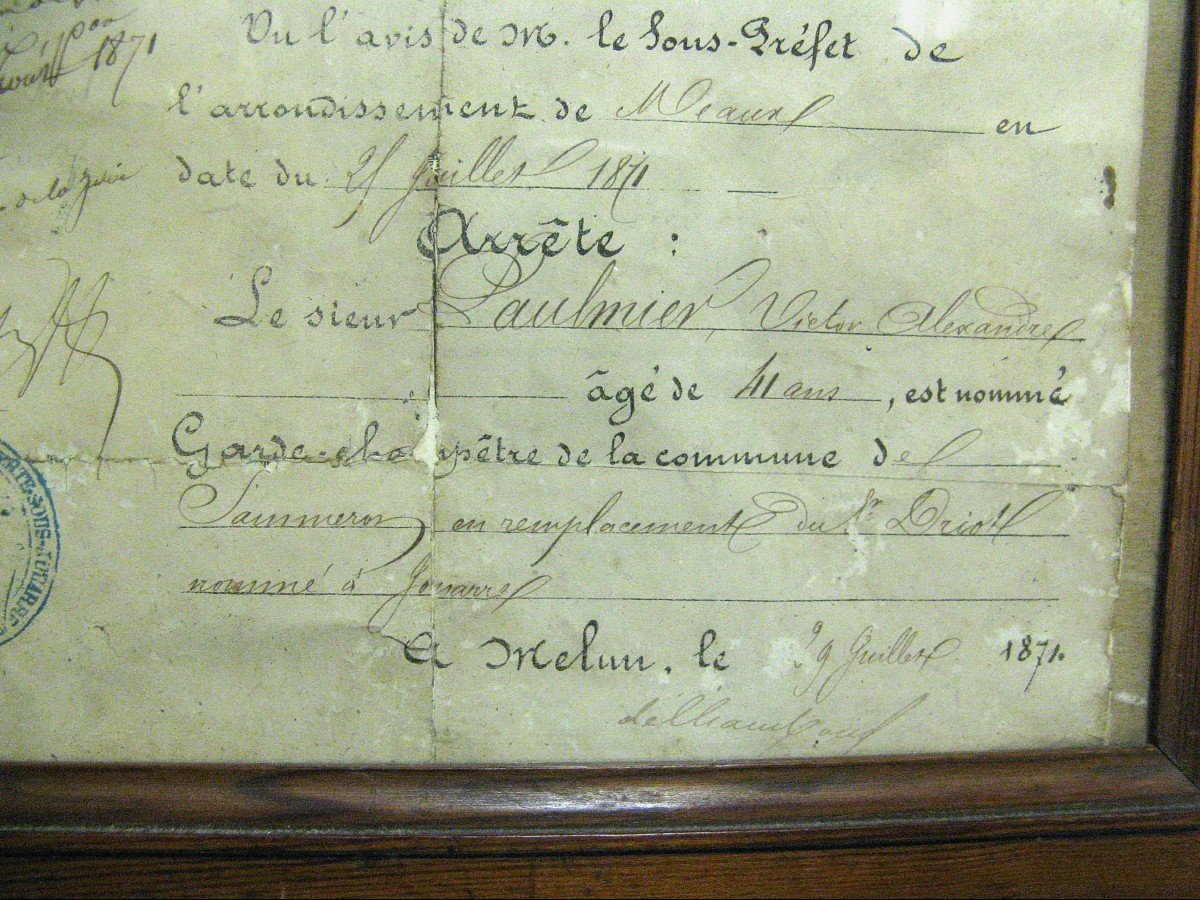 1871
Vu l'avis de M. le Sous-Préfet de
l'arrondissement de Meaux en
date du 25 Juillet 1871
de la
Arrête :
Le sieur Paulmier, Victor Alexandre
âgé de 41 ans, est nommé
Garde-champêtre de la commune de
Sammeron en remplacement du Sr Driot
nommé à Jouarre
SOUS-JOUARRE
A Melun, le 29 Juillet 1871.